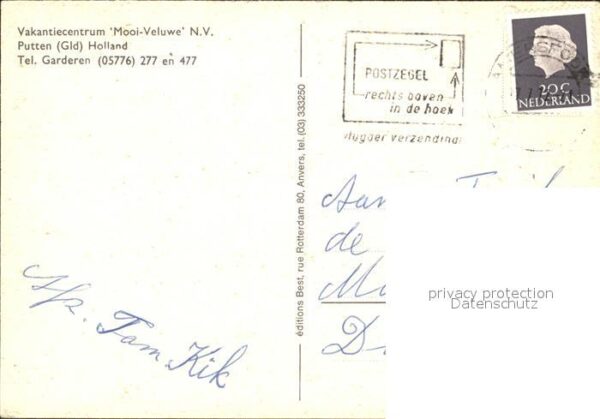 Vakantiecentrum 'Mooi-Veluwe' N.V.
Putten (Gld) Holland
Tel. Garderen (05776) 277 en 477
POSTZEGEL
rechts boven
in de hoek
vlugger verzending
20 C
NEDERLAND
éditions Best, rue Rotterdam 80, Anvers, tel. (03) 333250
Aan
de
Tom Kik
privacy protection
Datenschutz